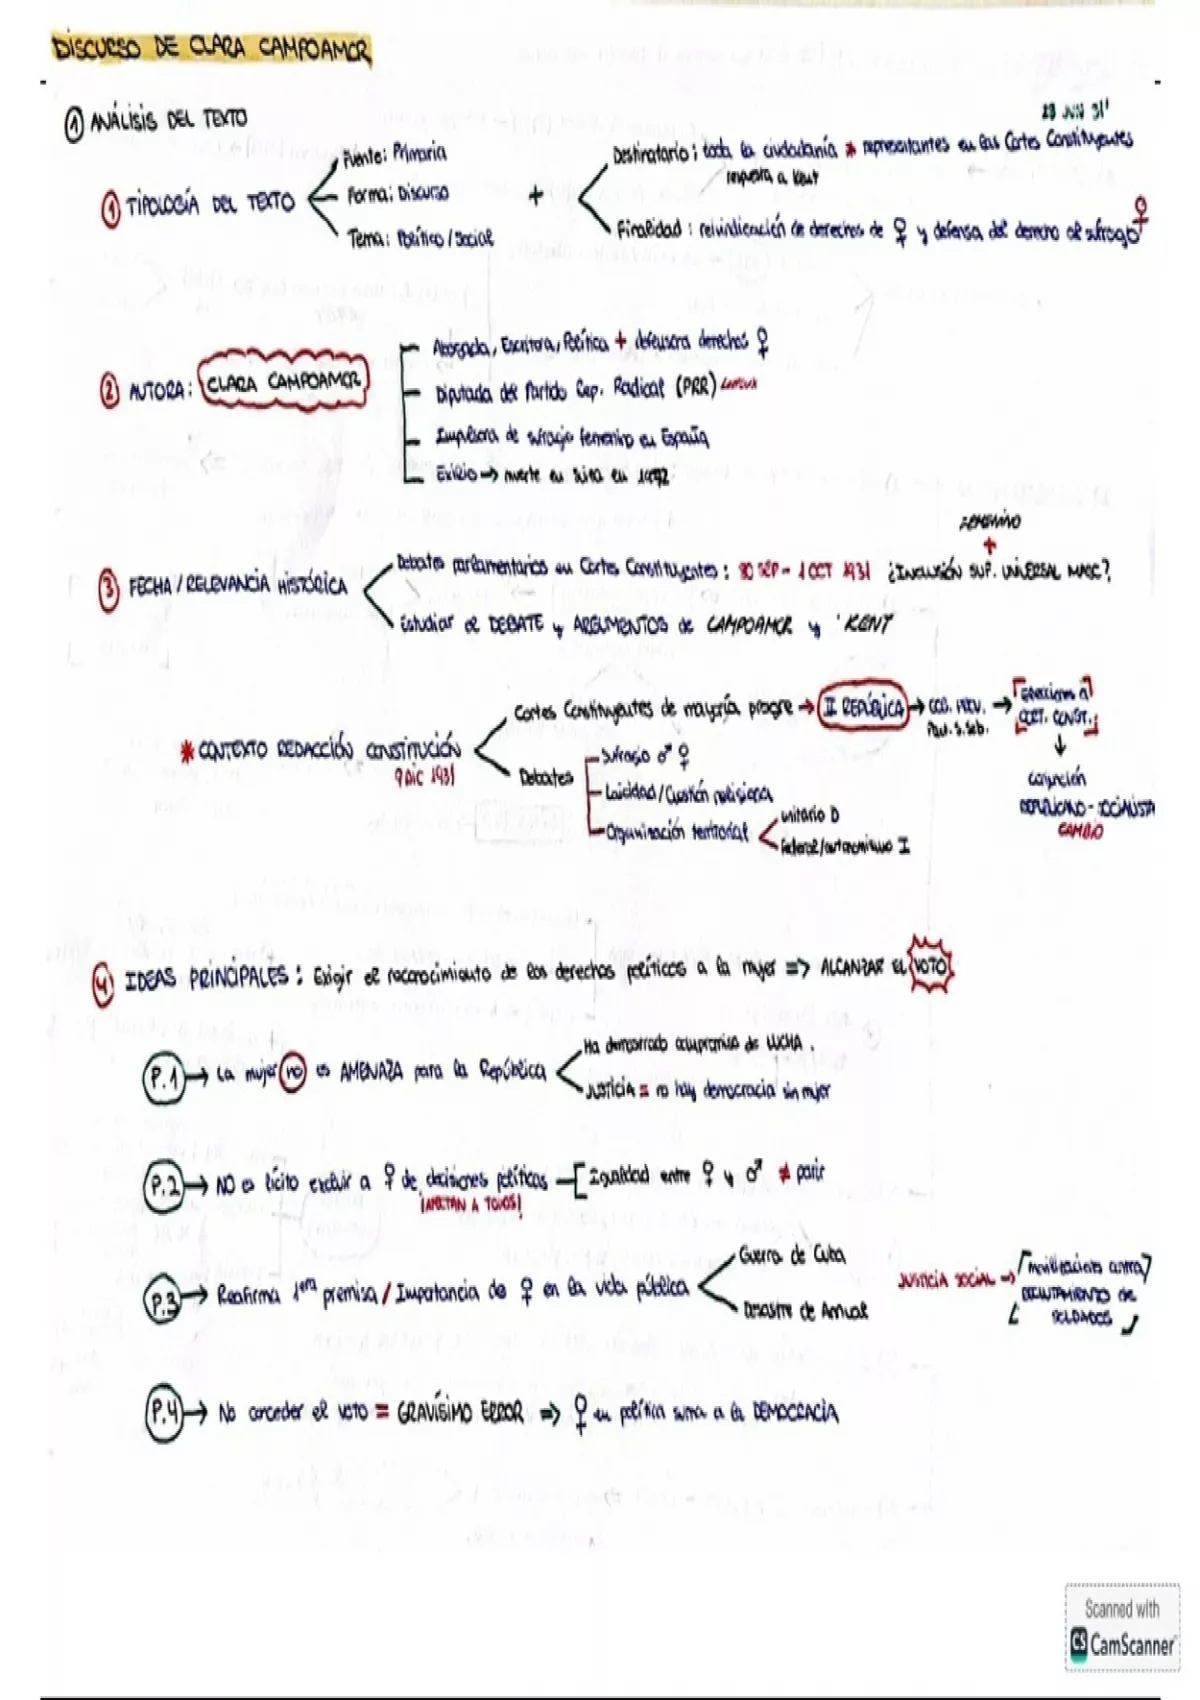 DISCURSO DE CLARA CAMPOAMOR
① ANÁLISIS DEL TEXTO
28 JUN 31'
① TIPOLOGÍA DEL TEXTO
Fuente: Primaria
Forma: Discurso
Tema: Político / Social
+
Destinatario: toda la ciudadanía * representantes en las Cortes Constituyentes
respuesta a Kent
Finalidad: reivindicación de derechos de ♀ y defensa del derecho al sufragio ♀
② AUTORA: CLARA CAMPOAMOR
Abogada, Escritora, Política + defensora derechos ♀
Diputada del Partido Rep. Radical (PRR)
Impulsora de sufragio femenino en España
Exilio → muerte en Suiza en 1972
③ FECHA / RELEVANCIA HISTÓRICA
FEMENINO
+
Debates parlamentarios en Cortes Constituyentes: 30 SEP - 1 OCT 1931 ¿INCLUSIÓN SUF. UNIVERSAL MASC?
Estudiar el DEBATE y ARGUMENTOS de CAMPOAMOR y KENT
* CONTEXTO REDACCIÓN CONSTITUCIÓN
9 DIC 1931
Cortes Constituyentes de mayoría progre → II REPÚBLICA → GOB. PROV. → [Elecciones a
CORT. CONST.]
↓
conjunción
REPUBLICANO - SOCIALISTA
CAMBIO
Debates
Sufragio ♂ ♀
Laicidad / Cuestión religiosa
Organización territorial
unitario D
Federal / autonomismo I
④ IDEAS PRINCIPALES: Exigir el reconocimiento de los derechos políticos a la mujer => ALCANZAR EL VOTO
P.1 → La mujer no es AMENAZA para la República
Ha demostrado compromiso de LUCHA.
JUSTICIA = no hay democracia sin mujer
P.2 → NO es lícito excluir a ♀ de decisiones políticas [Igualdad entre ♀ y ♂ ≠
¡AFECTAN A TODOS!
P.3 → Reafirma 1era premisa / Importancia de ♀ en la vida pública
Guerra de Cuba
Desastre de Annual
JUSTICIA SOCIAL → [movilizaciones contra
RECLUTAMIENTO de
SOLDADOS]
P.4 → No conceder el voto = GRAVÍSIMO ERROR => ♀ en política suma a la DEMOCRACIA
Scanned with
CS CamScanner